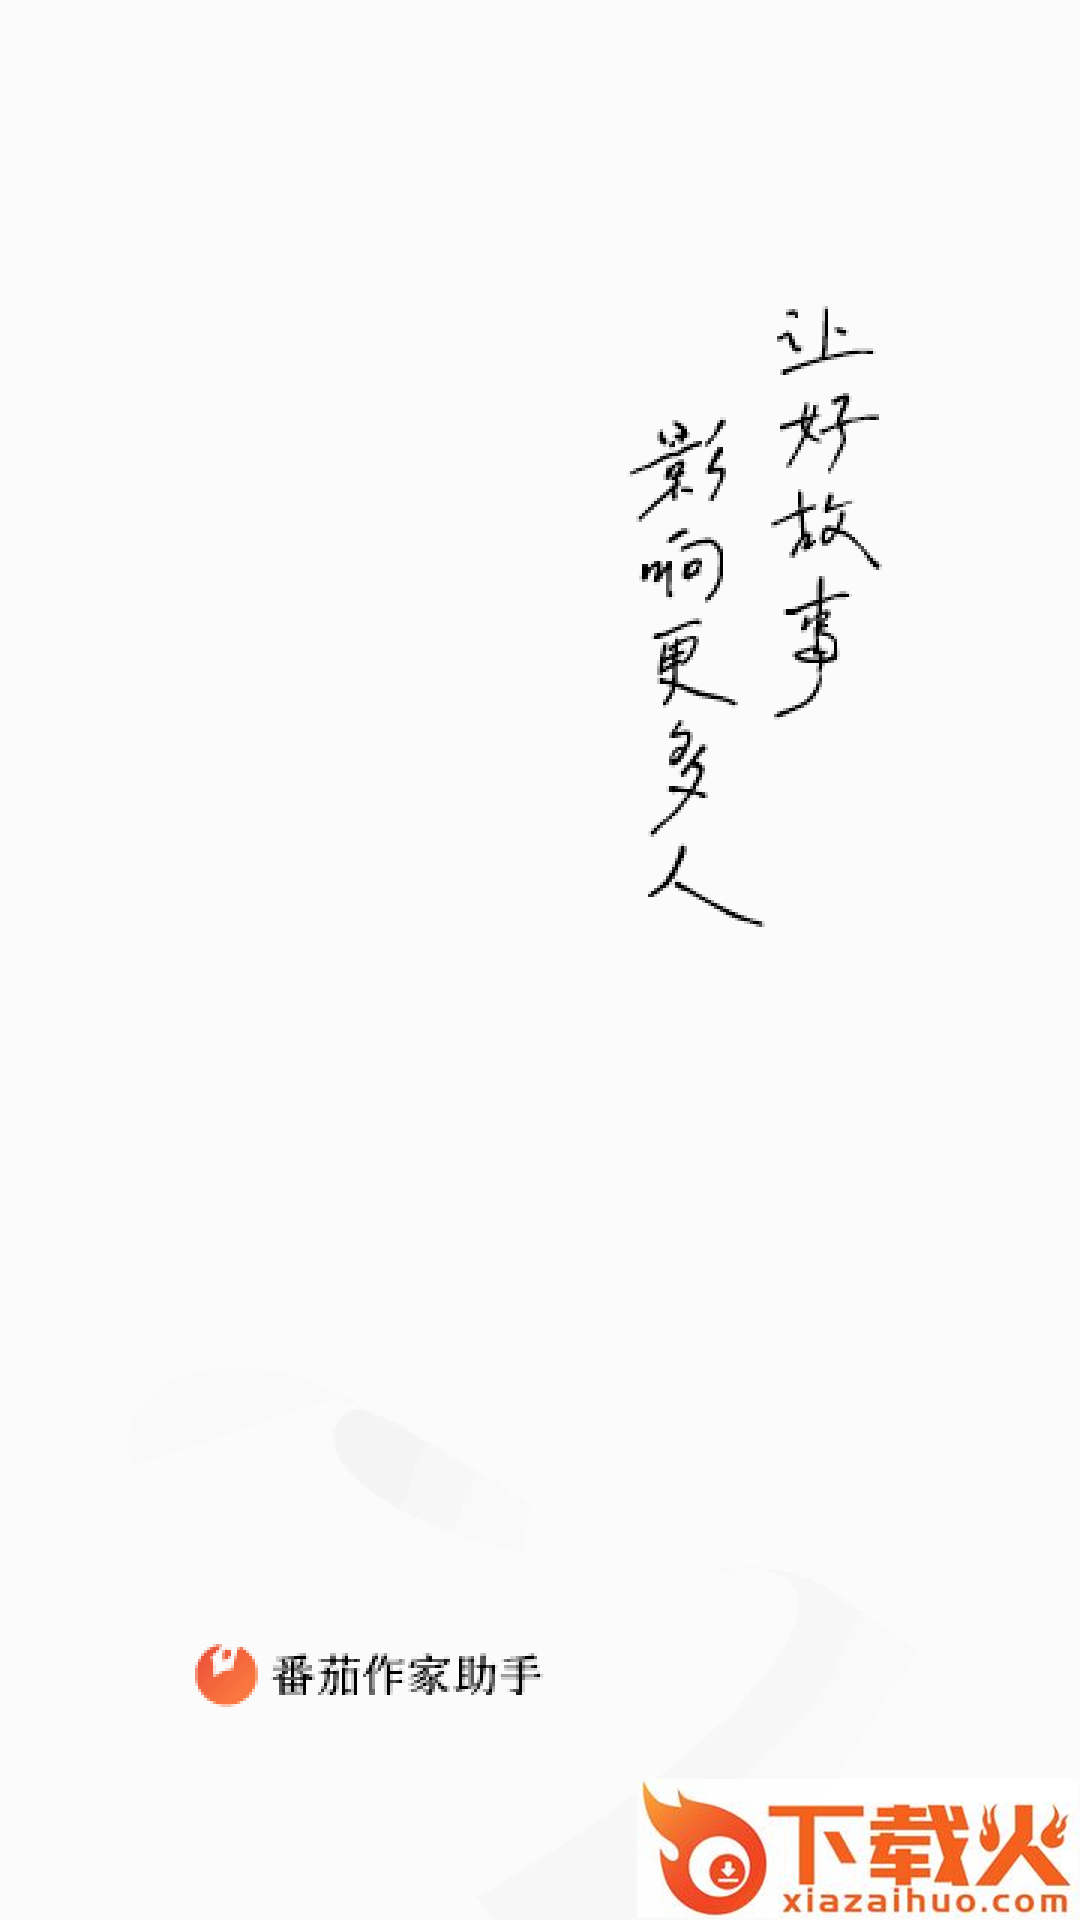 让好故事
影响更多人
番茄作家助手
下载火
xiazaihuo.com